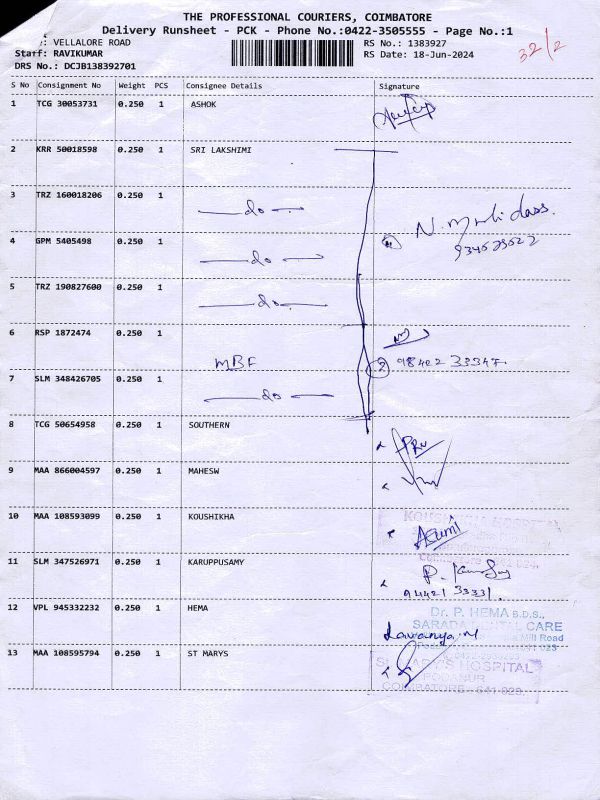 THE PROFESSIONAL COURIERS, COIMBATORE
Delivery Runsheet - PCK - Phone No.:0422-3505555 - Page No.:1
: VELLALORE ROAD
RS No.: 1383927
32/2
Staff: RAVIKUMAR
RS Date: 18-Jun-2024
DRS No.: DCJB138392701
S No Consignment No Weight PCS Consignee Details Signature
1 TCG 30053731 0.250 1 ASHOK
2 KRR 50018598 0.250 1 SRI LAKSHIMI
3 TRZ 160018206 0.250 1 —do—
4 GPM 5405498 0.250 1 —do—
5 TRZ 190827600 0.250 1 —do—
6 RSP 1872474 0.250 1 MBF
98422 33347
7 SLM 348426705 0.250 1 —do—
8 TCG 50654958 0.250 1 SOUTHERN
9 MAA 866004597 0.250 1 MAHESW
10 MAA 108593099 0.250 1 KOUSHIKHA
11 SLM 347526971 0.250 1 KARUPPUSAMY
94421 33331
12 VPL 945332232 0.250 1 HEMA
Dr. P. HEMA B.D.S.,
Lavanya.M
Mill Road
13 MAA 108595794 0.250 1 ST MARYS
HOSPITAL
PODANUR
COIMBATORE - 641 023